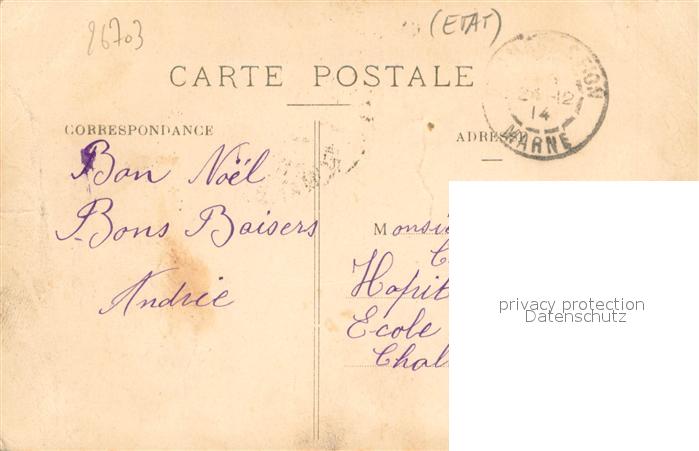 86703
(ETAT)
CARTE POSTALE
12
14
MARNE
CORRESPONDANCE
ADRESSE
Bon Noël
Bons Baisers
Andrée
Monsi
C
Hopit
Ecole
Chal
privacy protection
Datenschutz